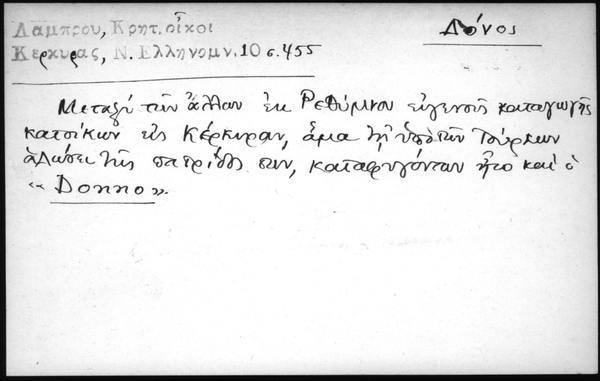 Λάμπρου, Κρητ. οἶκοι
Δόνος
Κερκυρας, Ν. Ελληνομν. 10 σ. 455
Μεταξύ τῶν ἄλλων ἐκ Ρεθύμνου εὐγενοῦς καταγωγῆς
κατοίκων εἰς Κέρκυραν, ἅμα τῇ ὑπὸ τῶν Τούρκων
ἁλώσει τῆς πατρίδος των, καταφυγόντων ἦτο καὶ ὁ
«Donno».